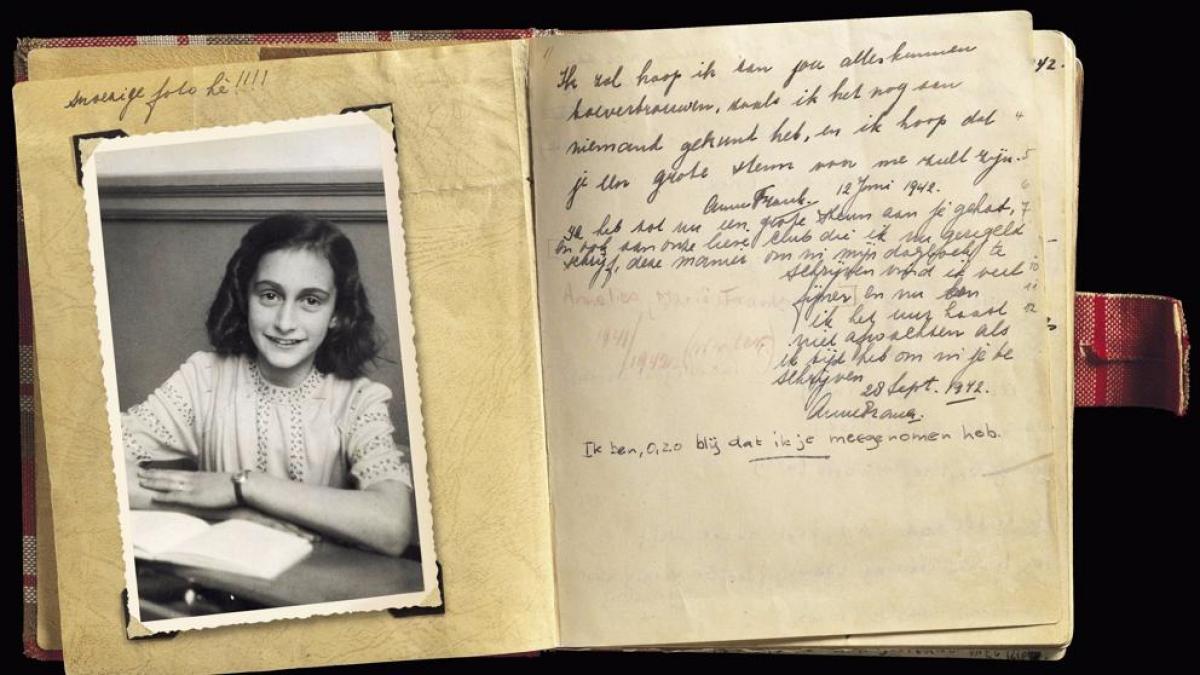 snoezige foto hè!!!!
Ik zal hoop ik aan jou alles kunnen
toevertrouwen, zoals ik het nog aan
niemand gekunt heb, en ik hoop dat
je een grote steun voor me zult zijn.
Anne Frank. 12 Juni 1942.
Ik heb tot nu een grote steun aan je gehad,
en ook aan onze lieve club die ik nu geregeld
schrijf, deze manier om in mijn dagboek te
schrijven vind ik veel
fijner en nu kan
ik het uur haast
niet afwachten als
ik tijd heb om in je te
schrijven
28 Sept. 1942.
Anne Frank.
Ik ben, o, zo blij dat ik je meegenomen heb.
Annelies, Marie Frank
1941/
1942
42.
4
5
6
7
10
11
12